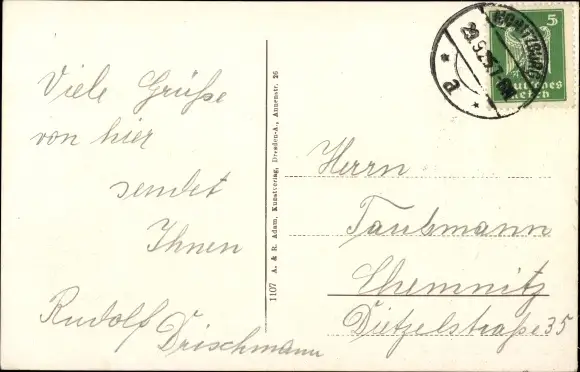 Viele Grüße
von hier
sendet
Ihnen
Rudolf
Drischmann
1107 A. & R. Adam, Kunstverlag, Dresden-A., Annenstr. 26
MORITZBURG
29.5.25.
a
5
Deutsches
Reich
Herrn
Taubmann
Chemnitz
Dietzelstraße 35